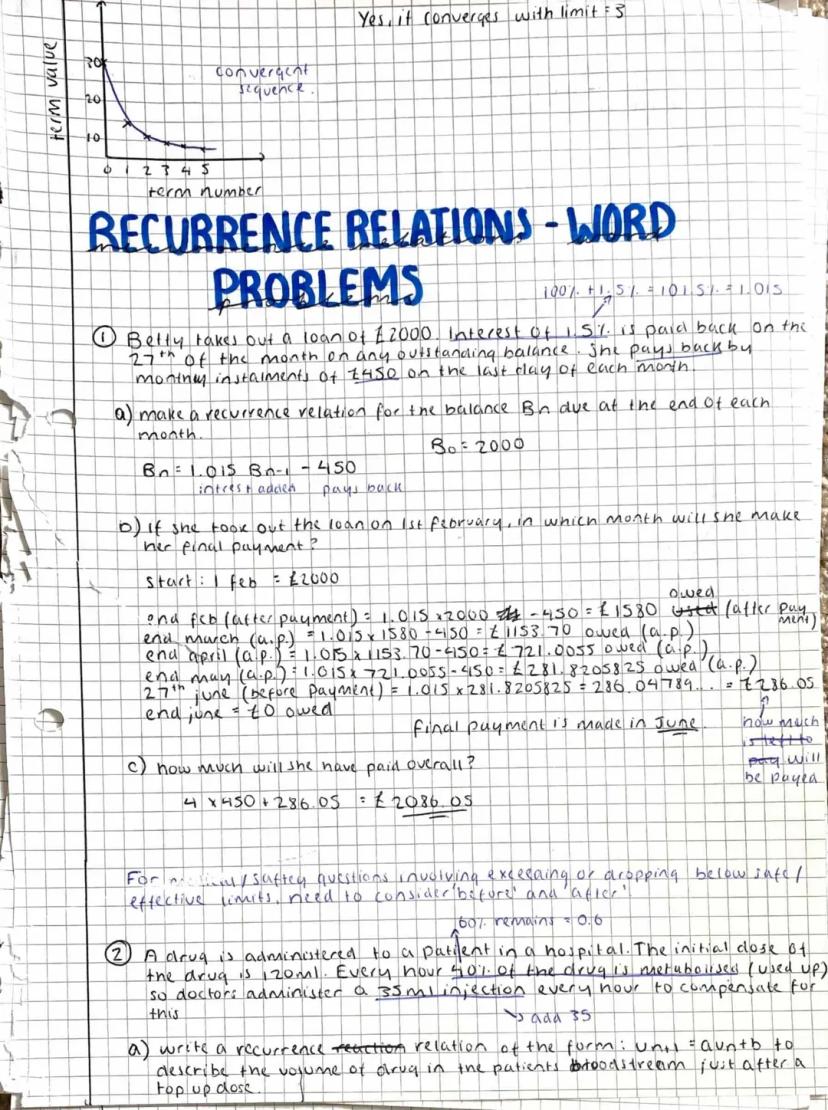 Yes, it converges with limit = 5
term value
30
20
10
convergent
sequence.
0 1 2 3 4 5
term number
RECURRENCE RELATIONS - WORD
PROBLEMS
100% + 1.5% = 101.5% = 1.015
① Betty takes out a loan of £2000. Interest of 1.5% is paid back on the
27th of the month on any outstanding balance. She pays back by
montnly instalments of £450 on the last day of each month.
a) make a recurrence relation for the balance Bn due at the end of each
month.
B0 = 2000
Bn = 1.015 Bn-1 - 450
intrest added pays back
b) if she took out the loan on 1st february, in which month will she make
her final payment?
start: 1 feb = £2000
owed
end feb (after payment) = 1.015 x 2000 - 450 = £1580 used (after payment)
end march (a.p.) = 1.015 x 1580 - 450 = £1153.70 owed (a.p.)
end april (a.p.) = 1.015 x 1153.70 - 450 = £721.0055 owed (a.p.)
end may (a.p.) = 1.015 x 721.0055 - 450 = £281.8205825 owed (a.p.)
27th june (before payment) = 1.015 x 281.8205825 = 286.04789... = £286.05
end june = £0 owed
final payment is made in June.
how much
is left to
pay will
be payed
c) how much will she have paid overall?
4 x 450 + 286.05 = £2086.05
For / saftey questions involving exceeding or dropping below safe/
effective limits, need to consider 'before' and 'after'
60% remains = 0.6
② A drug is administered to a patient in a hospital. The initial dose of
the drug is 120ml. Every hour 40% of the drug is metabolised (used up)
so doctors administer a 35ml injection every hour to compensate for
this
↘ add 35
a) write a recurrence reaction relation of the form: un+1 = aun+b to
describe the volume of drug in the patients bloodstream just after a
top up dose.